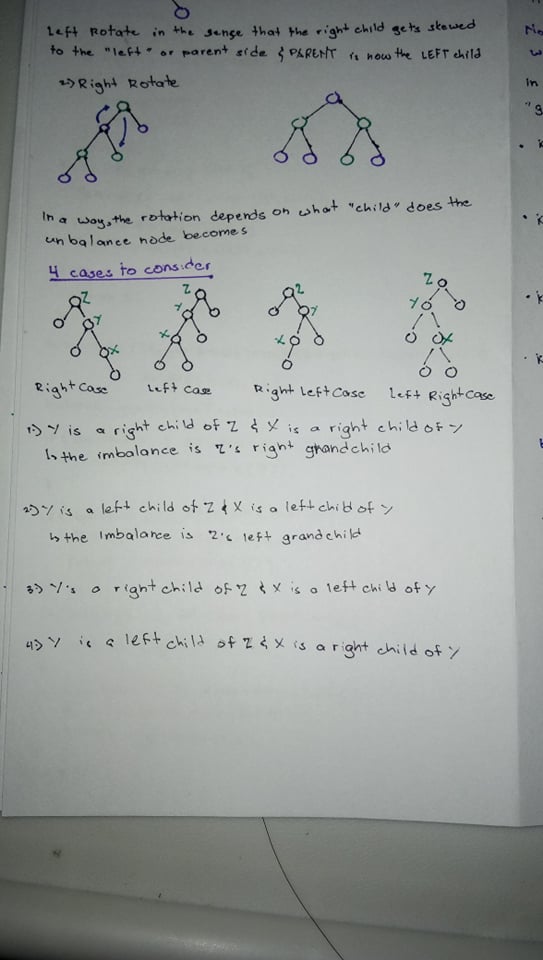 Left Rotate in the sense that the right child gets skewed
to the "left" or parent side & PARENT is now the LEFT child
2) Right Rotate
In a way, the rotation depends on what "child" does the
unbalance node becomes
4 cases to consider
Z Z Z Z
Y Y Y Y
X X X X
Right Case Left Case Right Left Case Left Right Case
1) Y is a right child of Z & X is a right child of Y
↳ the imbalance is Z's right grandchild
2) Y is a left child of Z & X is a left child of Y
↳ the imbalance is Z's left grandchild
3) Y's a right child of Z & X is a left child of Y
4) Y is a left child of Z & X is a right child of Y
In